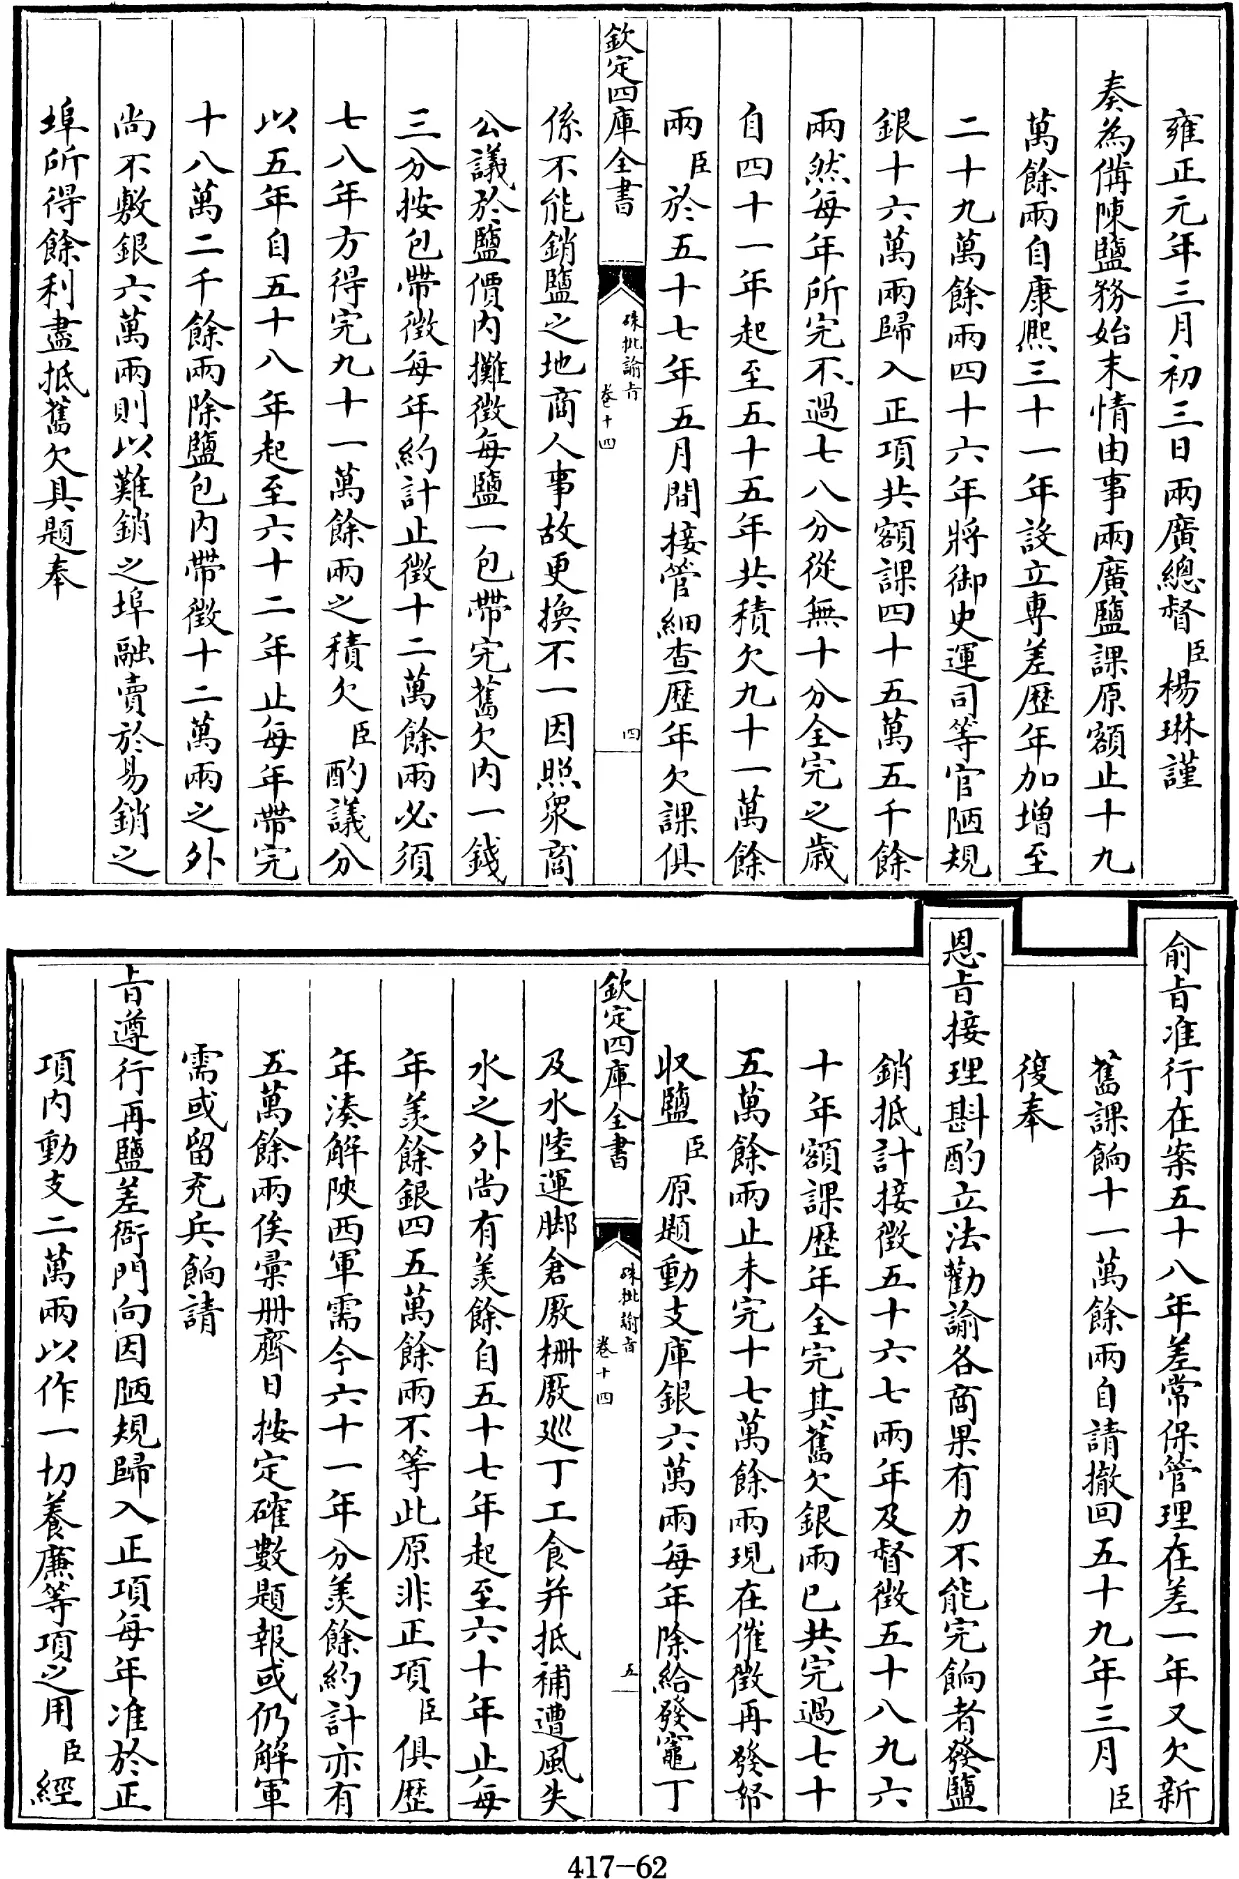 雍正元年三月初三日兩廣總督臣楊琳謹
奏為備陳鹽務始末情由事兩廣鹽課原額止十九
萬餘兩自康熙三十一年設立專差歷年加增至
二十九萬餘兩四十六年將御史運司等官陋規
銀十六萬兩歸入正項共額課四十五萬五千餘
兩然每年所完不過七八分從無十分全完之歲
自四十一年起至五十五年共積欠九十一萬餘
兩臣於五十七年五月間接管細查歷年欠課俱
欽定四庫全書
硃批諭旨
卷十四
四
係不能銷鹽之地商人事故更換不一因照眾商
公議於鹽價內攤徵每鹽一包帶完舊欠內一錢
三分按包帶徵每年約計止徵十二萬餘兩必須
七八年方得完九十一萬餘兩之積欠臣酌議分
以五年自五十八年起至六十二年止每年帶完
十八萬二千餘兩除鹽包內帶徵十二萬兩之外
尚不敷銀六萬兩則以難銷之埠融賣於易銷之
埠所得餘利盡抵舊欠具題奉
俞旨准行在案五十八年差常保管理在差一年又欠新
舊課餉十一萬餘兩自請撤回五十九年三月臣
復奉
恩旨接理斟酌立法勸諭各商果有力不能完餉者發鹽
銷抵計接徵五十六七兩年及督徵五十八九六
十年額課歷年全完其舊欠銀兩已共完過七十
五萬餘兩止未完十七萬餘兩現在催徵再發帑
收鹽臣原題動支庫銀六萬兩每年除給發竈丁
欽定四庫全書
硃批諭旨
卷十四
五
及水陸運脚倉厫柵厫巡丁工食并抵補遭風失
水之外尚有羨餘自五十七年起至六十年止每
年羨餘銀四五萬餘兩不等此原非正項臣俱歷
年湊解陝西軍需今六十一年分羨餘約計亦有
五萬餘兩俟彙冊齊日按定確數題報或仍解軍
需或留充兵餉請
旨遵行再鹽差衙門向因陋規歸入正項每年准於正
項內動支二萬兩以作一切養廉等項之用臣經
417-62